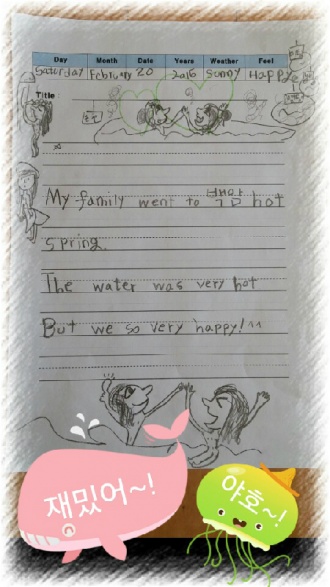 Day Month Date Years Weather Feel
Saturday February 20 2016 Sunny Happy
Title :
My family went to 백암 hot
spring.
The water was very hot
But we so very happy!^^
재밌어~!
야호~!